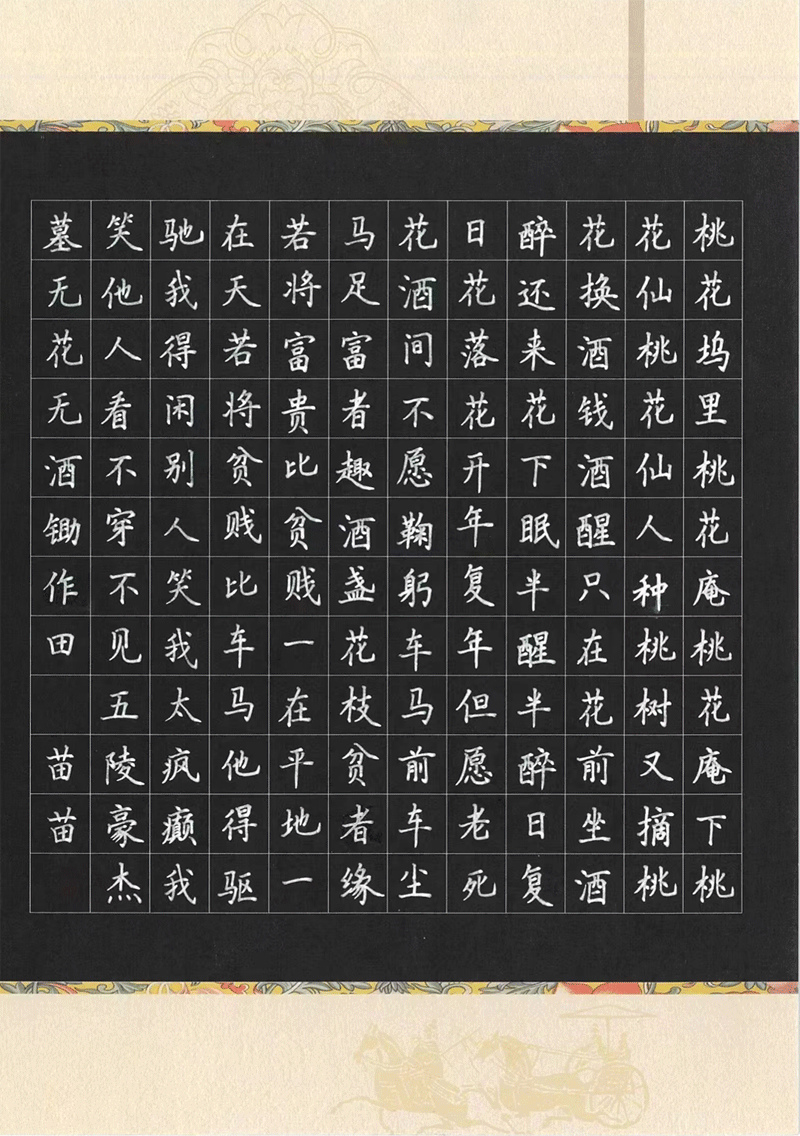 桃花坞里桃花庵桃花庵下桃
花仙桃花仙人种桃树又摘桃
花换酒钱酒醒只在花前坐酒
醉还来花下眠半醒半醉日复
日花落花开年复年但愿老死
花酒间不愿鞠躬车马前车尘
马足富者趣酒盏花枝贫者缘
若将富贵比贫贱一在平地一
在天若将贫贱比车马他得驱
驰我得闲别人笑我太疯癫我
笑他人看不穿不见五陵豪杰
墓无花无酒锄作田 苗苗